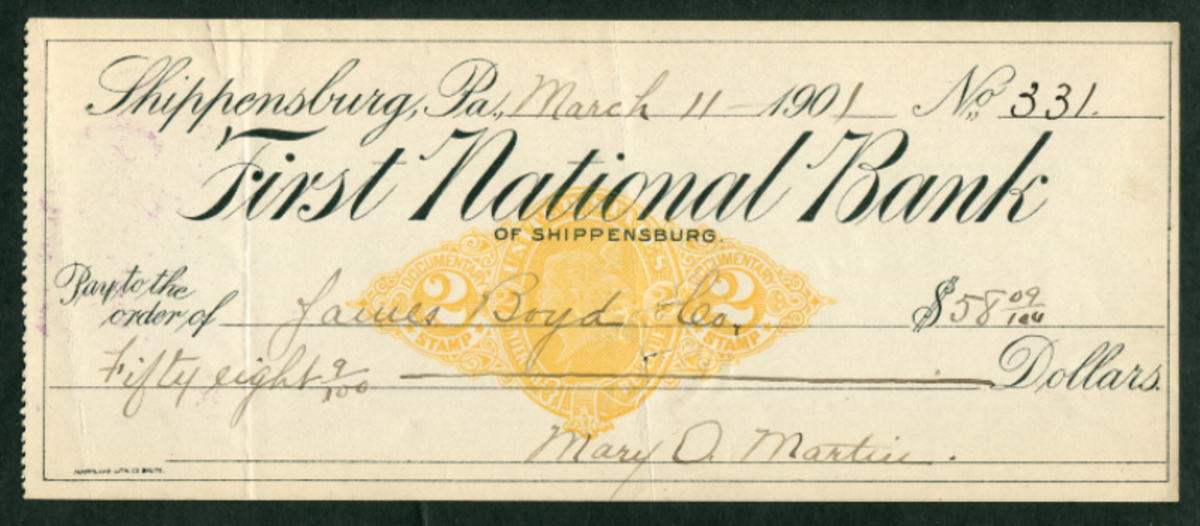 Shippensburg, Pa., March 11 - 1901 No. 331.
First National Bank
OF SHIPPENSBURG.
DOCUMENTARY DOCUMENTARY
2 2
STAMP STAMP
Pay to the
order of James Boyd & Co. $58 09/100
Fifty eight 9/100 Dollars.
Mary D. Martin.